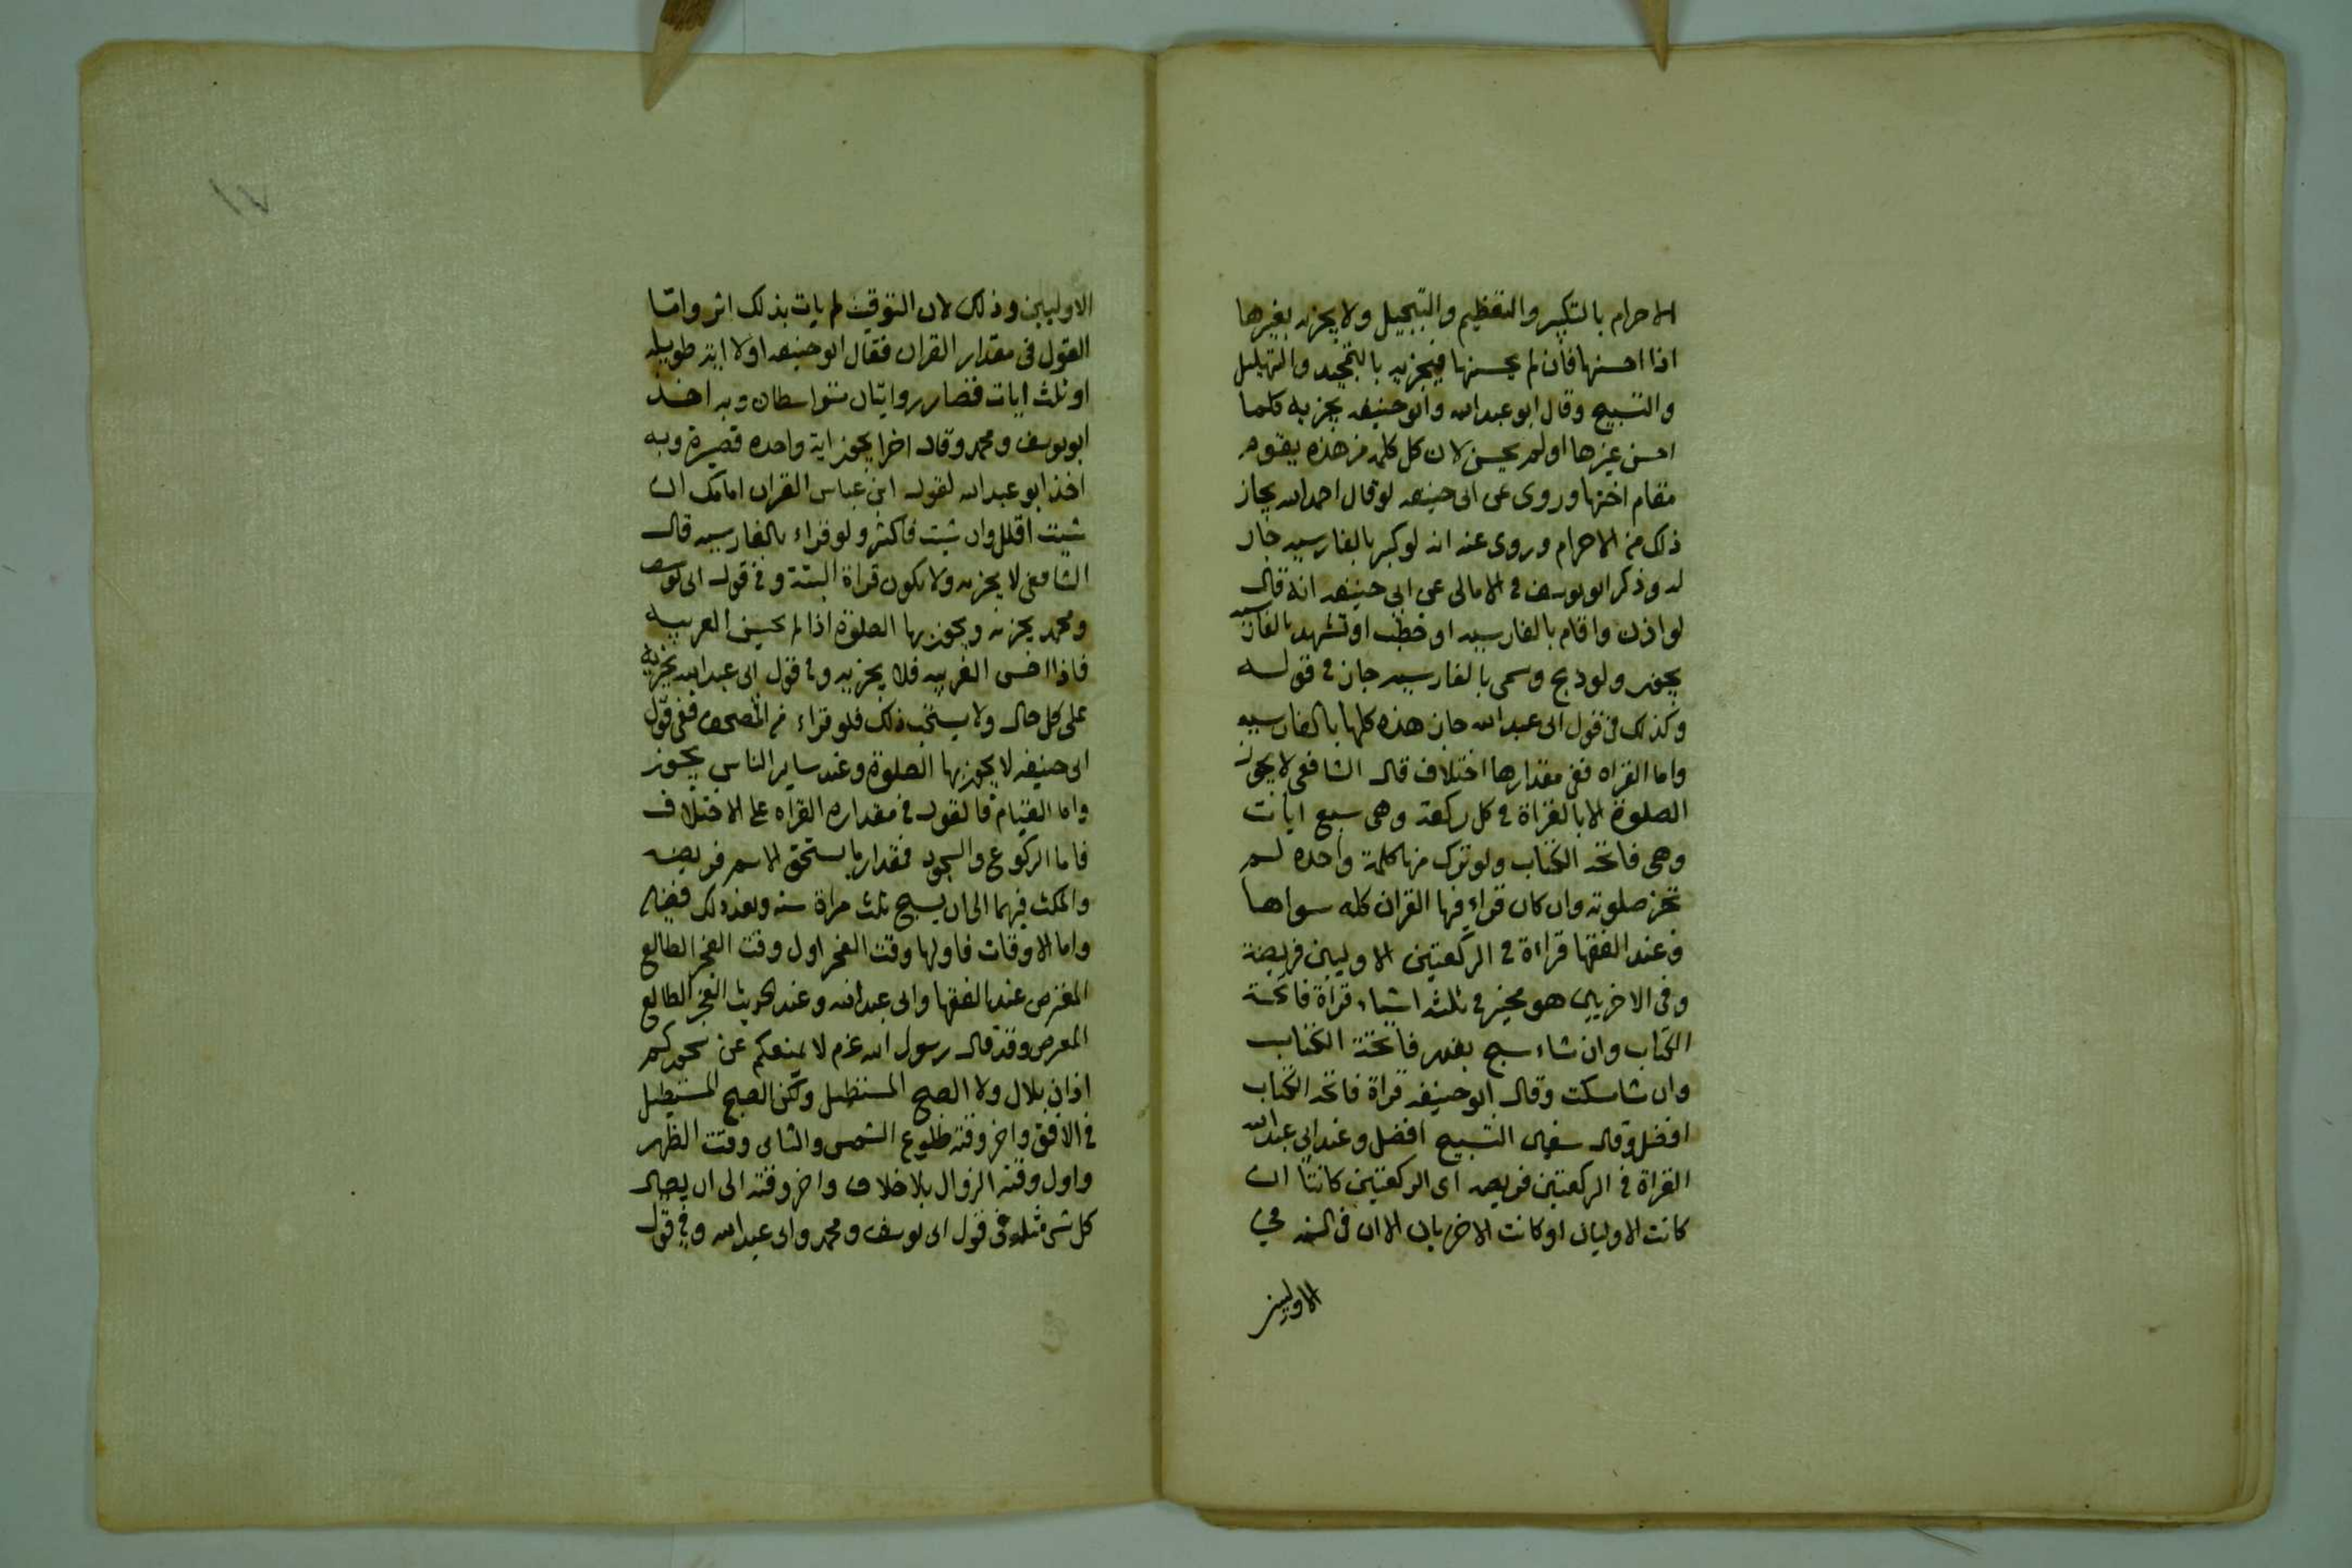 الاحرام بالتكبير والتعظيم والتبجيل ولا يجزيه بغيرها
اذا احسنها فان لم يحسنها فيجزيه بالتمجيد والتهليل
والتسبيح وقال ابو عبد الله وابو حنيفه يجزيه كلما
احسن غيرها اولم يحسن لان كل كلمه من هذه يقوم
مقام اختها وروى عن ابى حنيفه لو قال احمد الله يجاز
ذلك من الاحرام وروى عنه انه لو كبر بالفارسيه جاز
له وذكر ابو يوسف فى الامالى عن ابى حنيفه انه قال
لو اذن واقام بالفارسيه او خطب او تشهد بالفارسيه
يجوز ولو ذبح وسمى بالفارسيه جاز فى قوله
وكذلك فى قول ابى عبد الله جاز هذه كلها بالفارسيه
واما القراه ففى مقدارها اختلاف قال الشافعى لا يجوز
الصلوة الا بالقراة فى كل ركعة وهى سبع ايات
وهى فاتحه الكتاب ولو ترك منها كلمة واحده لم
تجز صلوته وان كان قراء فيها القران كله سواها
وعند الفقها قراءة فى الركعتين الاوليين فريضة
وفى الاخريين هو مخير فى ثلثه اشياء قراة فاتحة
الكتاب وان شاء سبح بغير فاتحة الكتاب
وان شا سكت وقال ابو حنيفه قراة فاتحه الكتاب
افضل وقال سفيان التسبيح افضل وعند ابى عبد الله
القراة فى الركعتين فريضه اى الركعتين كانتا ان
كانت الاوليان او كانت الاخريان الا ان فى السنه فى
الاوليين
١٧
الاوليين وذلك لان التوقيت لم يات بذلك اثر واما
القول فى مقدار القران فقال ابو حنيفه اولا ايه طويله
او ثلث ايات قصار روايتان متواسطان وبه اخذ
ابو يوسف ومحمد وقال اخرا يجوز اية واحده قصيرة وبه
اخذ ابو عبد الله لقول ابن عباس القران امامك ان
شيت اقلل وان شيت فاكثر ولو قراء بالفارسيه قال
الشافعى لا يجزيه ولا يكون قراة البتة وفى قول ابى يوسف
ومحمد يجزيه ويجوز بها الصلوة اذا لم يحسن العربيه
فاذا احسن العربيه فلا يجزيه وفى قول ابى عبد الله يجزيه
على كل حال ولا يستحب ذلك فلو قراء من المصحف ففى قول
ابى حنيفه لا يجوز بها الصلوة وعند ساير الناس يجوز
واما القيام فالقول فى مقداره القراه على الاختلاف
فاما الركوع والسجود فمقدار ما يستحق الاسم فريضه
والمكث فيهما الى ان يسبح ثلث مراة سنه وبعد ذلك فضيله
واما الاوقات فاولها وقت الفجر اول وقت الفجر الطالع
المعترض عند الفقها وابى عبد الله وعند الحديث الفجر الطالع
المعرض وقد قال رسول الله عزم لا يمنعكم عن سحوركم
اذان بلال ولا الصبح المستطيل ولكن الصبح المستطيل
فى الافق واخر وقته طلوع الشمس والثانى وقت الظهر
واول وقته الزوال بلا خلاف واخر وقته الى ان يصار
كل شى مثله فى قول ابى يوسف ومحمد وابى عبد الله وفى قول